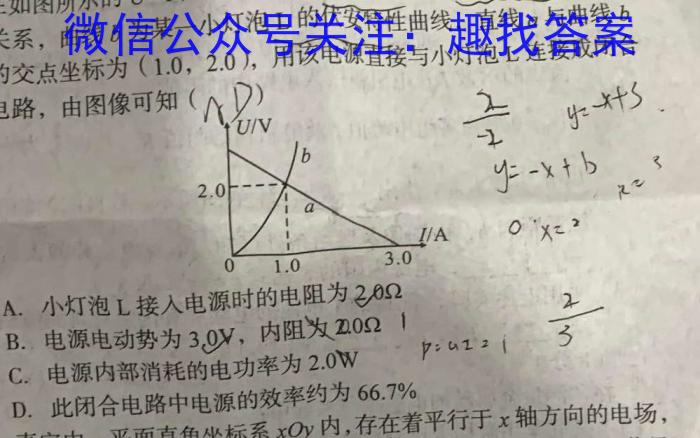 在如图所示的U
微信公众号关注：趣找答案
关系，
某一小灯泡L的伏安特性曲线
曲线b
的交点坐标为（1.0，2.0），用该电源直接与小灯泡L连接成闭合
电路，由图像可知（ D）
U/V
b
2.0
a
I/A
0
1.0
3.0
y=-x+3
y=-x+b
x=3
0 x=2
2
-2
A. 小灯泡L接入电源时的电阻为2.0Ω
B. 电源电动势为3.0V，内阻为2.0Ω 1
C. 电源内部消耗的电功率为2.0W
P=UI=1
2
3
D. 此闭合电路中电源的效率约为66.7%
平面直角坐标系xOy内，存在着平行于x轴方向的电场，